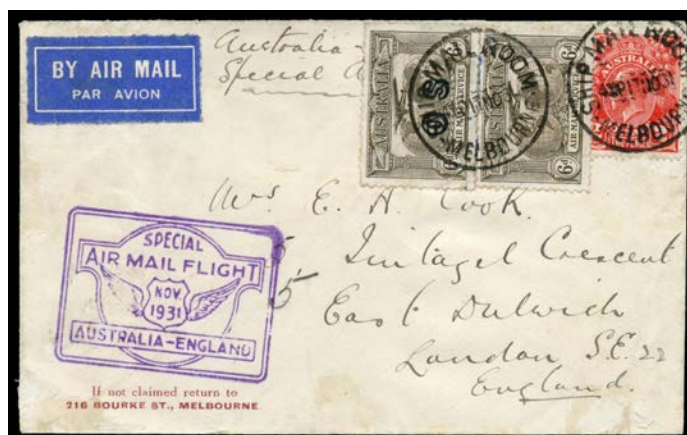 BY AIR MAIL
PAR AVION
Australia -
Special
AUSTRALIA
AIR MAIL SERVICE
6d
AUSTRALIA
AIR MAIL SERVICE
6d
AUSTRALIA
SHIP MAIL ROOM
MELBOURNE
SHIP MAIL ROOM
MELBOURNE
Mrs E. H. Cook.
5 Tintagel Crescent
East Dulwich
London S.E. 22
England.
SPECIAL
AIR MAIL FLIGHT
NOV.
1931
AUSTRALIA-ENGLAND
If not claimed return to
216 BOURKE ST., MELBOURNE.